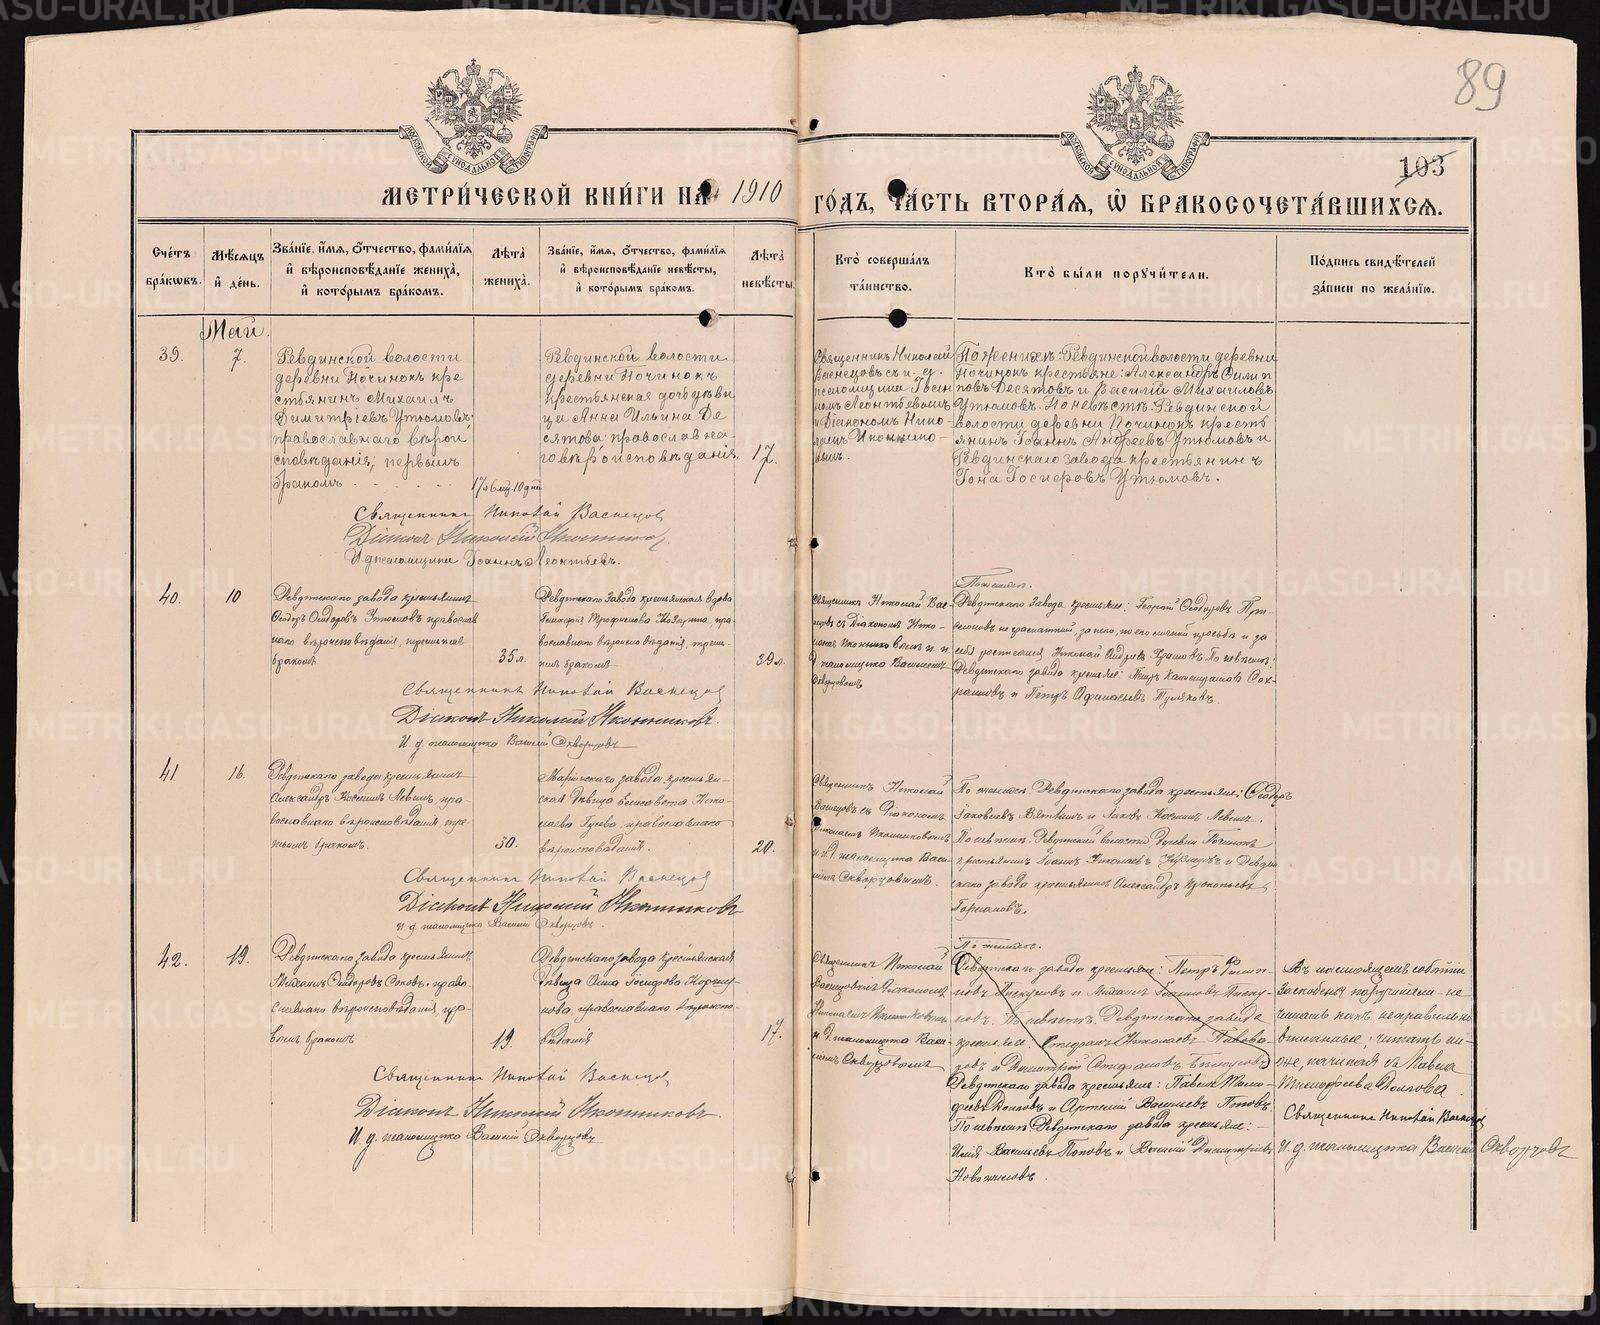 89
103
МЕТРИ́ЧЕСКОЙ КНИ́ГИ НА 1910 ГО́ДЪ, ЧА́СТЬ ВТОРА́Я, Ѽ БРАКОСОЧЕТА́ВШИХСЯ.
Сче́тъ бра́кѡвъ.
Мѣ́сяцъ и де́нь.
Зва́нїе, и́мя, о́тчество, фами́лїя и вѣроисповѣ́данїе жениха̀, и кото́рымъ бра́комъ.
Лѣ́та жениха̀.
Зва́нїе, и́мя, о́тчество, фами́лїя и вѣроисповѣ́данїе невѣ́сты, и кото́рымъ бра́комъ.
Лѣ́та невѣ́сты.
Кто̀ соверша́лъ та́инство.
Кто̀ бы́ли поручи́тели.
По́дпись свидѣ́телей за́писи по жела́нїю.
Май.
39.
7.
Ревдинской волости
деревни Починокъ кре
стьянинъ Михаилъ
Димитріевъ Утюмовъ,
православнаго вѣрои
сповѣданія, первымъ
бракомъ
17 л 6 мц. 10 дней
Ревдинской волости
деревни Починокъ
крестьянская дочь дѣви
ца Анна Ильина Де
сятова православна-
го вѣроисповѣданія.
17.
Священникъ Николай
Васнецовъ съ и. д.
псаломщика Іоан
номъ Леонтьевымъ
и Діакономъ Нико-
лаемъ Иконнико-
вымъ.
По женихѣ: Ревдинской волости деревни
Починокъ крестьяне: Александръ Фили п
повъ Десятовъ и Василій Михаиловъ
Утюмовъ. По невѣстѣ: Ревдинской
волости деревни Починокъ кресть
янинъ Іоаннъ Андреевъ Утюмовъ и
Ревдинскаго завода крестьянинъ
Іона Іосифовъ Утюмовъ.
Священникъ Николай Васнецов
Діаконъ Николай Иконников.
И д псаломщика Іоаннъ Леонтьевъ.
40.
10
Ревдинскаго завода крестьянинъ
Ѳеодоръ Ѳеодоровъ Утюмовъ православ
наго вѣроисповѣданія, третьимъ
бракомъ
35 л.
Ревдинскаго завода крестьянская вдова
Гликерія Трофимова Козырина, пра-
вославнаго вѣроисповѣданія, треть-
имъ бракомъ
39 л.
Священникъ Николай Вас-
нецовъ съ Діакономъ Нико-
лаемъ Иконниковымъ и и.
д псаломщика Василіемъ
Скворцовымъ
По женихѣ.
Ревдинскаго завода крестьяне: Георгій Ѳеодоровъ
неграмотный, за него, по его личной просьбѣ и за
себя росписался Николай Андреевъ Храмовъ. По невѣстѣ:
Ревдинскаго завода крестьяне:
и Петръ Аѳанасьевъ Туляковъ.
Священникъ Николай Васнецов
Діаконъ Николай Иконниковъ.
И. д. псаломщика Василій Скворцовъ
41
16.
Ревдинскаго завода крестьянинъ
Александръ Козьминъ Левинъ, пра-
вославнаго вѣроисповѣданія пер-
вымъ бракомъ.
30.
Маріинскаго завода крестьян-
ская дѣвица Елисавета Нико-
лаева Гусева, православнаго
вѣроисповѣданія.
20.
Священникъ Николай
Васнецовъ съ Діакономъ
Николаемъ Иконниковымъ
и и. д. псаломщика Васи-
ліемъ Скворцовымъ.
По женихѣ Ревдинскаго завода крестьяне: Ѳеодоръ
Іаковлевъ Вяткинъ и Іаковъ Козьминъ Левинъ.
По невѣстѣ: Ревдинской волости, деревни Починокъ
крестьянинъ Іоаннъ Николаевъ и Ревдин
скаго завода крестьянинъ Александръ Прокопьевъ
Священникъ Николай Васнецов
Діаконъ Николай Иконниковъ
И. д. псаломщика Василій Скворцовъ.
42.
19.
Ревдинскаго завода крестьянинъ
Михаилъ Ѳеодоровъ Соковъ, право
славнаго вѣроисповѣданія, пер-
вымъ бракомъ
19.
Ревдинскаго завода крестьянская
дѣвица Анна Іосифова
православнаго вѣроиспо-
вѣданія
17.
Священникъ Николай
Васнецовъ съ Діакономъ
Николаемъ Иконниковымъ
и. д. псаломщика Васи-
ліемъ Скворцовымъ
По женихѣ.
Ревдинскаго завода крестьяне: Петръ Филип
повъ Пискуновъ и Михаилъ Писку
новъ. По невѣстѣ: Ревдинскаго завода
крестьяне: Стефанъ Николаевъ
и Димитрій Стефановъ
Ревдинскаго завода крестьяне: Павелъ Тимо-
феевъ Долговъ и Артемій Васильевъ Поповъ.
По невѣстѣ Ревдинскаго завода крестьяне:
Илія Васильевъ Поповъ и Василій Димитріевъ
Новожиловъ.
Въ настоящемъ событіи
Заскобены поручители не
читать какъ неправильно
вписанные; читать ни-
же, начиная съ Павла
Тимофеева Долгова.
Священникъ Николай Васнецов
И. д. псаломщика Василій Скворцовъ
Священникъ Николай Васнецов
Діаконъ Николай Иконниковъ.
И. д. псаломщика Василій Скворцовъ
METRIKI.GASO-URAL.RU